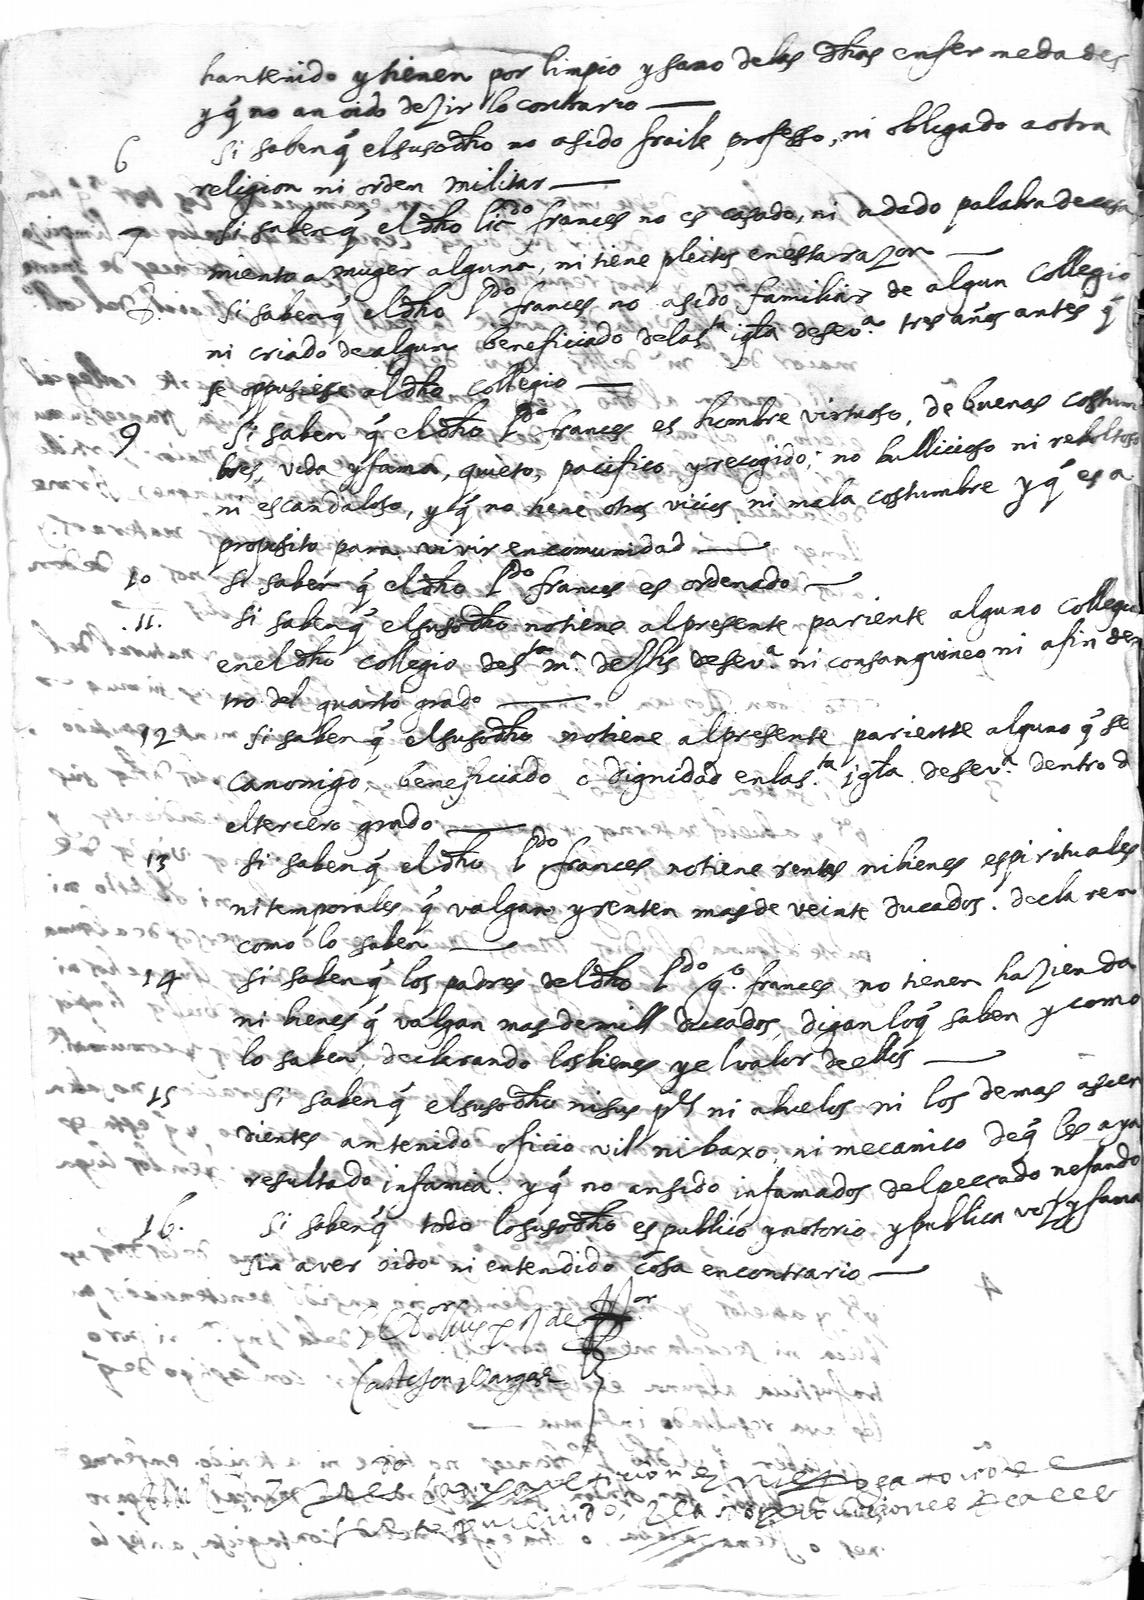 han tenido y tienen por limpio y sano de las dhas enfermedades
y q̃ no an oido dezir lo contrario —
6 Si saben q̃ el susodho no a sido fraile professo, ni obligado a otra
religion ni orden militar —
7 Si saben q̃ el dho licdo frances no es casado, ni a dado palabra de casa
miento a muger alguna, ni tiene pleitos en esta razon —
8. Si saben q̃ el dho ldo frances no a sido familiar de algun Collegio
ni criado de algun beneficiado de la sta igla de seva. tres años antes q̃
se oppusiese al dho collegio —
9 Si saben q̃ el dho ldo frances es hombre virtuoso, de buenas costum
bres, vida y fama, quieto, pacifico y recogido; no bullicioso ni reboltoso
ni escandaloso, y q̃ no tiene otros vicios ni mala costumbre y q̃ es a
proposito para vivir en comunidad —
10 Si saben q̃ el dho ldo frances es ordenado —
.11. Si saben q̃ el susodho no tiene al presente pariente alguno collegial
en el dho collegio de sta ma. de Jhs de seva. ni consanguineo ni afin den
tro del quarto grado —
12 Si saben q̃ el susodho no tiene al presente pariente alguno q̃ se
canonigo, beneficiado o dignidad en la sta. igla de seva. dentro d
el tercero grado —
13 Si saben q̃ el dho ldo frances no tiene rentas ni bienes espirituales
ni temporales q̃ valgan y renten mas de veinte ducados. declaren
como lo saben —
14 Si saben q̃ los padres del dho ldo go. frances no tienen hazienda
ni bienes q̃ valgan mas de mill ducados, digan lo q̃ saben y como
lo saben, declarando los bienes y el valor de ellos —
15 Si saben q̃ el susodho ni sus ps ni abuelos ni los demas ascen
dientes an tenido oficio vil ni baxo, ni mecanico de q̃ les aya
resultado infamia. y q̃ no an sido infamados del peccado nefando
16. Si saben q̃ todo lo susodho es publico y notorio y publica voz y fama
sin aver oido ni entendido cosa en contrario —